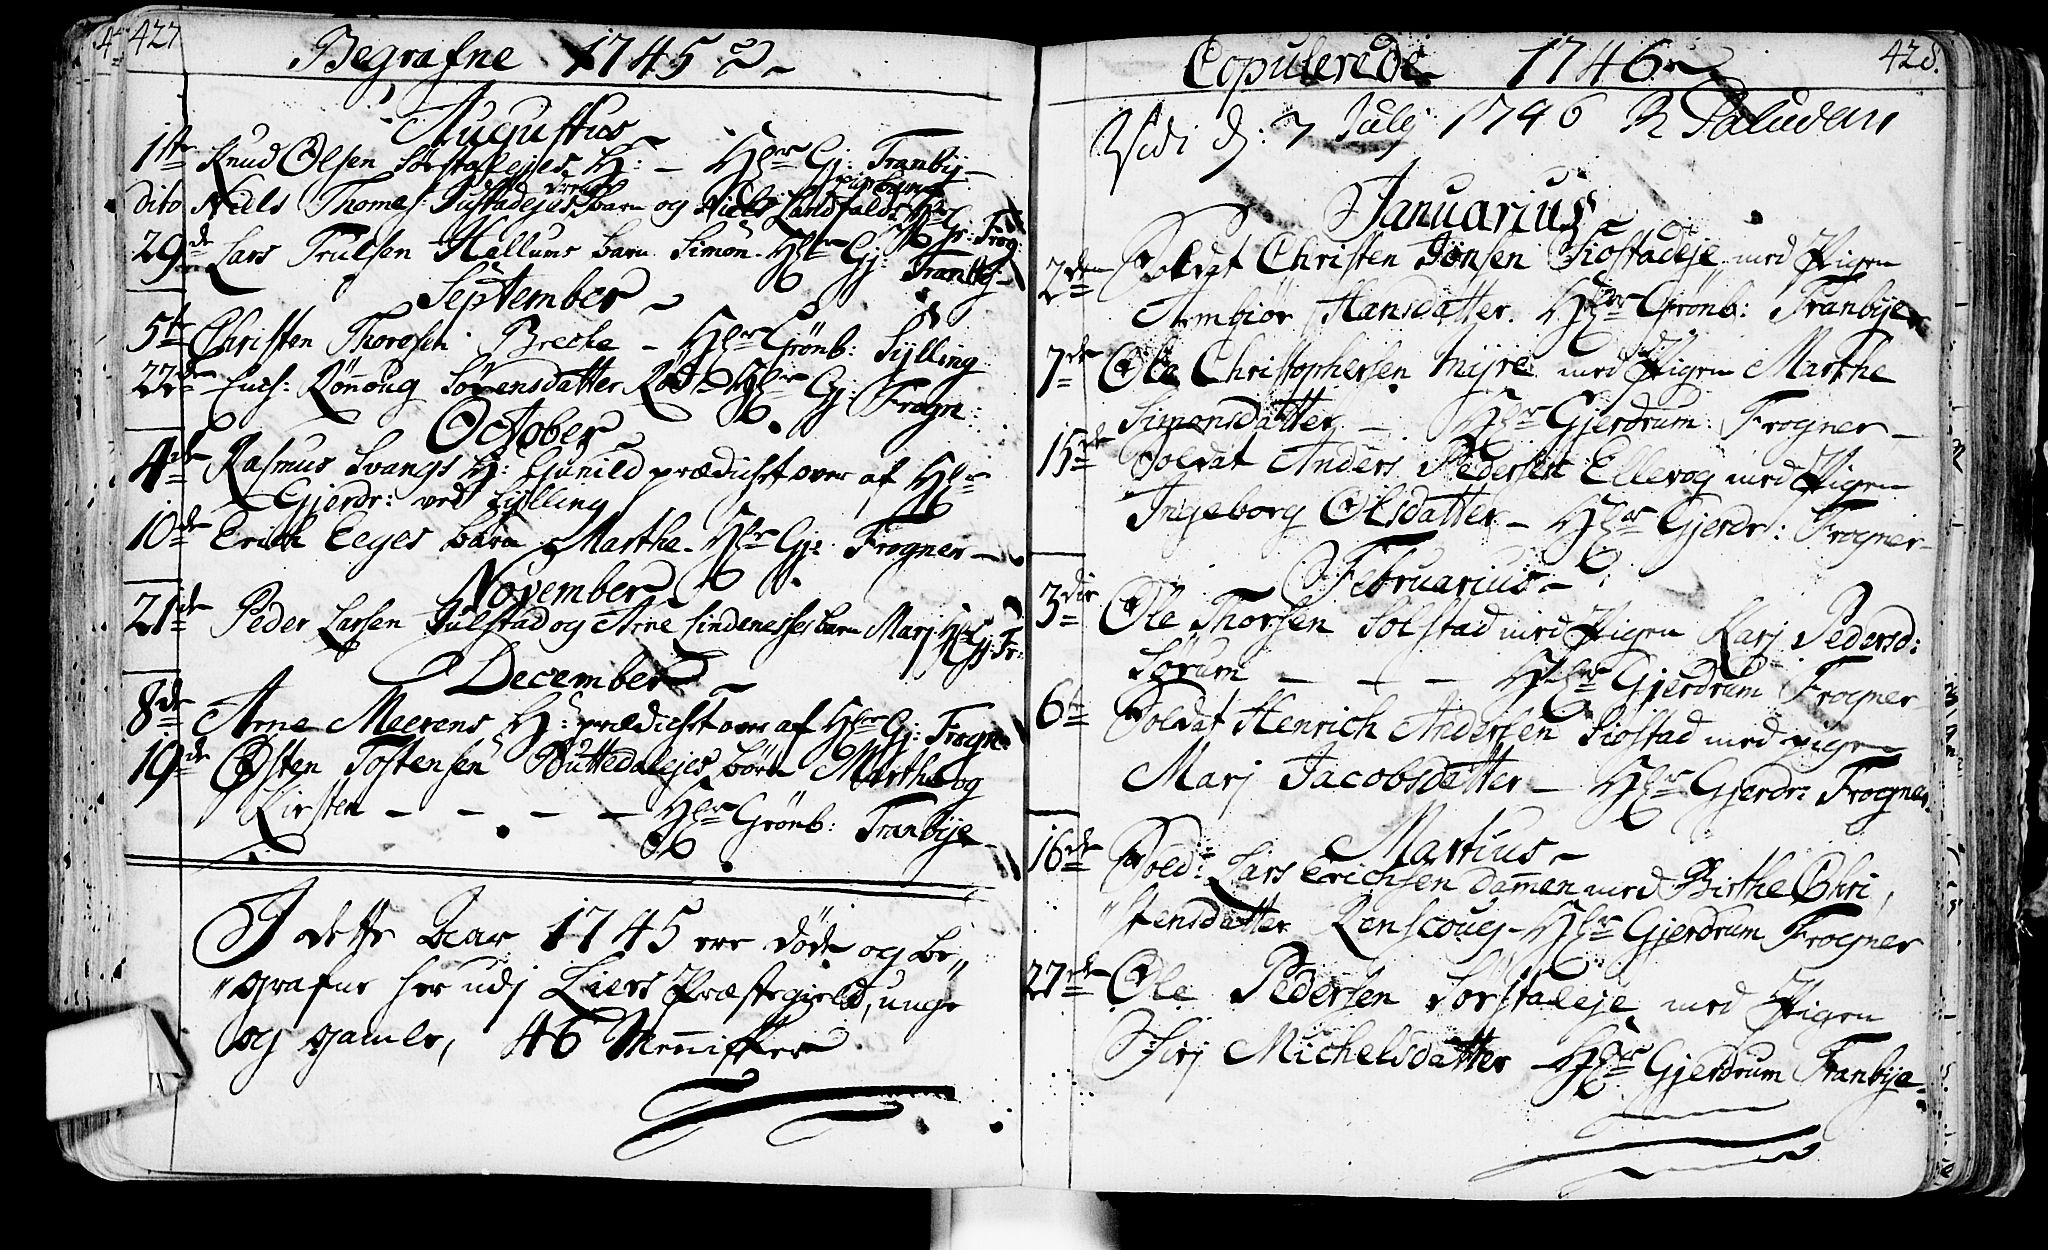 427
Begrafne 1745
Augustus
1ste Knud Olsen Sørstaejes H: – Hr Gj: Tranbÿ –
dito Niels Thomes: Justadejes barn og Niels Landfalds pigebarn Hr Gj: Frog:
29de Lars Trulsen Hallums barn Simon. Hr Gj: Tranbÿ –
September
5te Christen Thoresen Brecke – Hr Grönb: Sylling
22de Rönnoug Sörensdatter Röd Hr Gj: Frogn:
October
4de Rasmus Svangs H: Gunild prædichet over af Hr
Gjerdr: ved Sylling
10de Erich Eeges barn Martha. Hr Gj: Frogner –
November
21de Peder Larsen Julstad og Arne Lindenesses barn Marj Hr Gj: Fr:
December
8de Arne Meerens H: prædichet over af Hr Gj: Frogn:
19de Østen Tostensen Buttedalejes børn Marthe og
Kirsten – – – – Hr Grönb: Tranbÿe
I dette Aar 1745 ere døde og be„
„grafne her udj Liers Præstegield, unge
og gamle, 46 Mennisker
428.
Copulerede 1746
Vidi d: 7 Julij 1746 R Paludan
Januarius
2den Soldat Christen Jonsen Siostadeje med Pigen
Armbior Hansdatter. Hr Grönb: Tranbÿe
7de Ole Christophersen Myre med Pigen Marthe
Simonsdatter – Hr Gjerdrum: Frogner –
15de Soldat Anders Pedersen Ellevog med Pigen
Ingeborg Olsdatter – Hr Gjerdr: Frogner –
Februarius –
3die Ole Thorsen Solstad med Pigen Karj Pedersd:
Sørum – – – Hr Gjerdrum Frogner
6te Soldat Henrich Andersen Siostad med pigen
Marj Jacobsdatter – Hr Gjerdr: Frogner.
Martius –
16de Sold: Lars Erichsen Dammen med Birthe Chri„
„stensdatter Renscoug – Hr Gjerdrum Frogner
27de Ole Pedersen Sørstaeleje med Pigen
Sirj Michelsdatter – Hr Gjerdrum Tranbÿe –